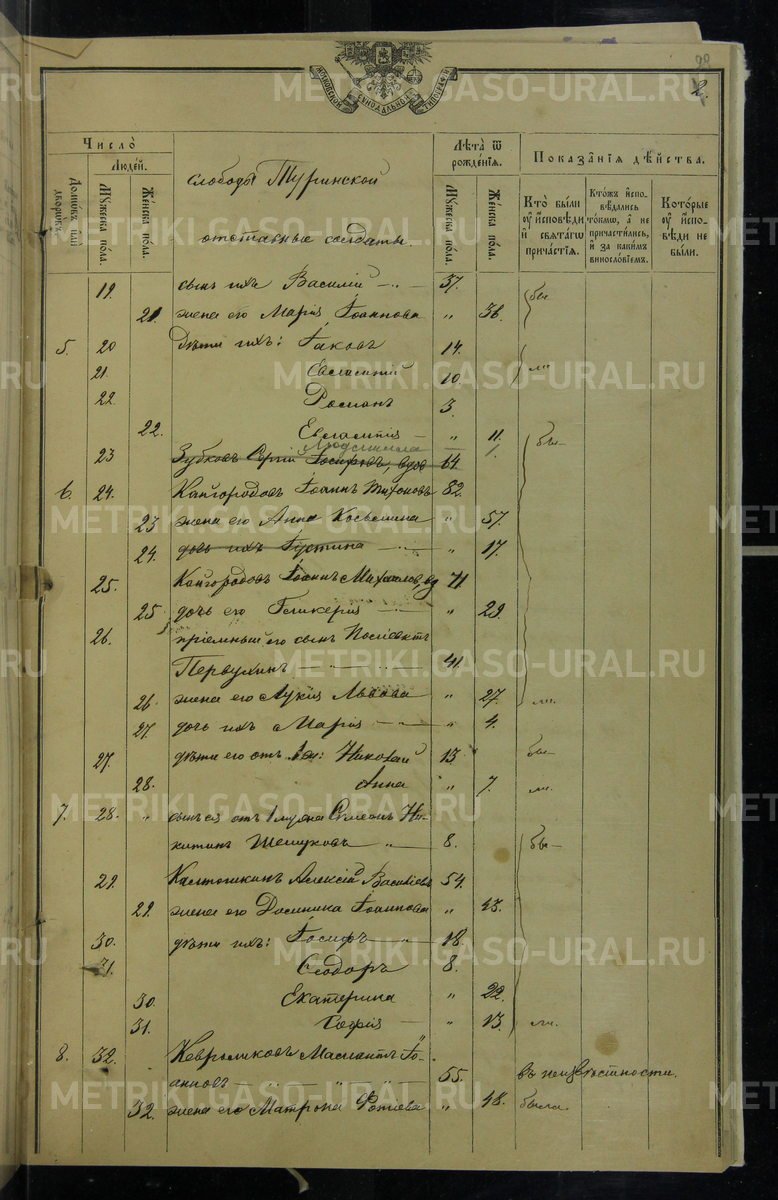 МОСКОВСКОЙ СѴНОДАЛЬНОЙ ТИПОГРАФІИ
28
2
METRIKI.GASO-URAL.RU
Число̀
Людей.
Домовъ или дворовъ.
Мꙋжеска пола.
Женска пола.
слободы Туринской
отставные солдаты.
Лѣта ѿ рожденїѧ.
Мꙋжеска пола.
Женска пола.
Показанїѧ дѣйства.
Кто были ᲂу исповѣди и свѧтагѡ причастїѧ.
Ктожъ исповѣдались токмѡ, а не причастились, и за какимъ винословїемъ.
Которые ᲂу исповѣди не были.
19. сынъ ихъ Василій 37. бы
21 жена его Марія Іоаннова " 36.
5. 20 дѣти ихъ: Іаковъ 14.
21. 10. ли
22 3.
22. Евглампія " 11. бы
Людмилла — 1.
23 Зубковъ Сергій Іосифовъ, вдов 64.
6. 24. Кайгородовъ Іоаннъ 82.
23 жена его Анна Косьмина " 57.
24. дочь ихъ Іустина " 17.
25. Кайгородовъ Іоаннъ Михаиловъ, вд 71
25 дочь его Гликерія " 29
26. пріемный его сынъ
Первухинъ 41.
26 жена его Лукія Львова " 27. ли.
27. дочь ихъ Марія " 4.
27. дѣти его отъ 1 ж: Николай 13 бы
28. Анна " 7. ли.
7. 28. " сынъ ея отъ 1 мужа Симеонъ Ни-
китинъ 8. бы
29. Алексій Васильевъ 54.
29. жена его Домника Іоаннова " 43.
30. дѣти ихъ: Іосифъ 18.
31. Ѳеодоръ 8.
30. Екатерина " 22.
31. Софія " 13. ли.
8. 32. Іо-
анновъ 55. въ неизвѣстности.
32. жена его Матрона Фотіева " 48. была.